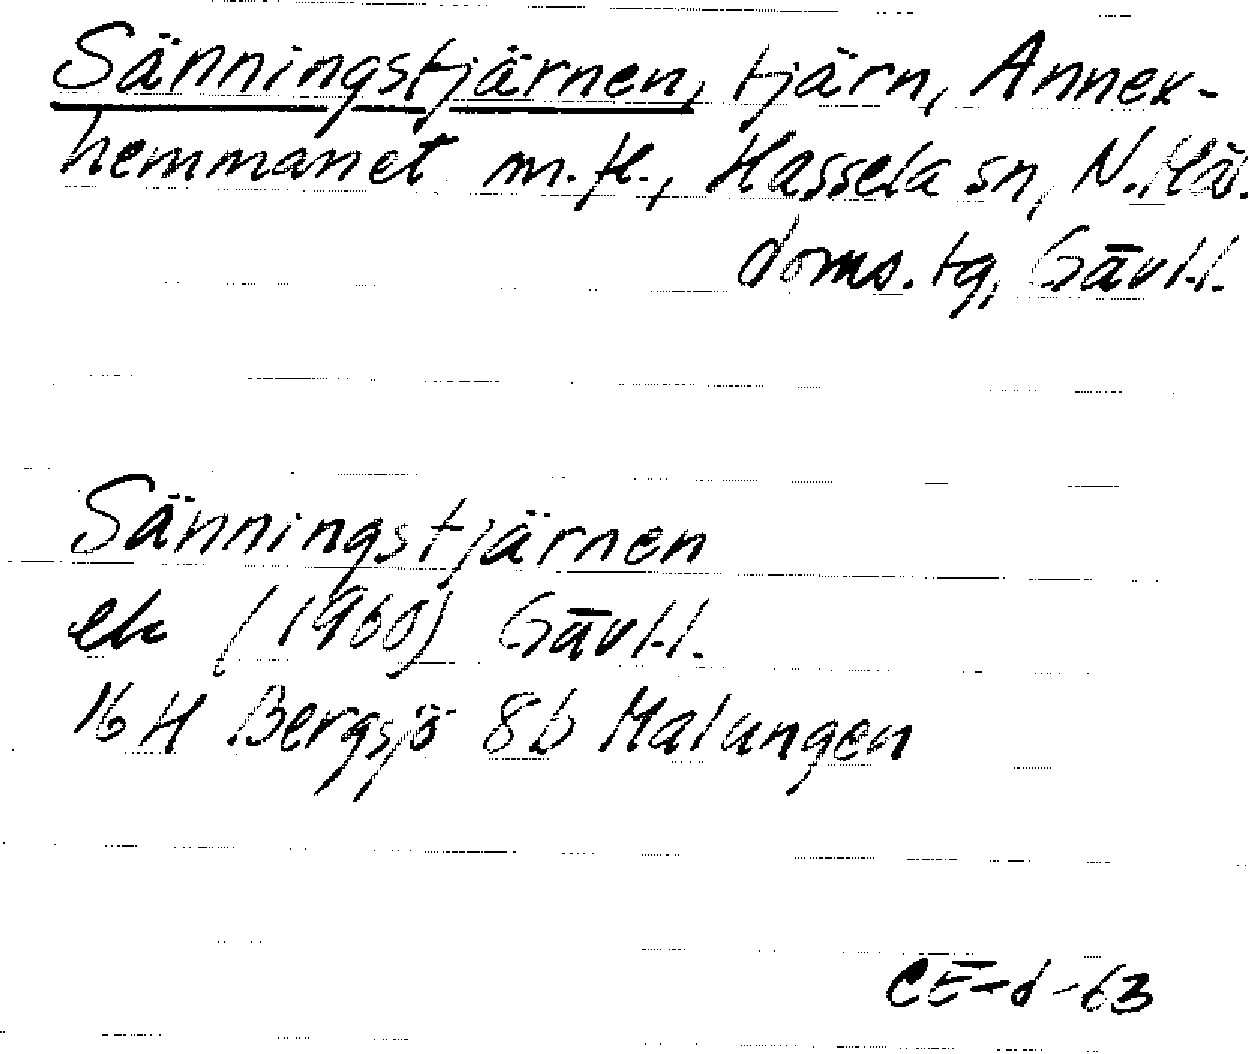 Sänningstjärnen, tjärn, Annex-
hemmanet m.fl., Hassela sn, N. Häl.
doms. tg, Gävl.l.
Sänningstjärnen
ek (1960) Gävl.l.
16 H Bergsjö 8b Malungen
CE-d-63